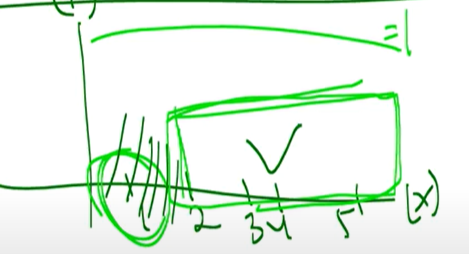 =1
2 3 4 5 (x)